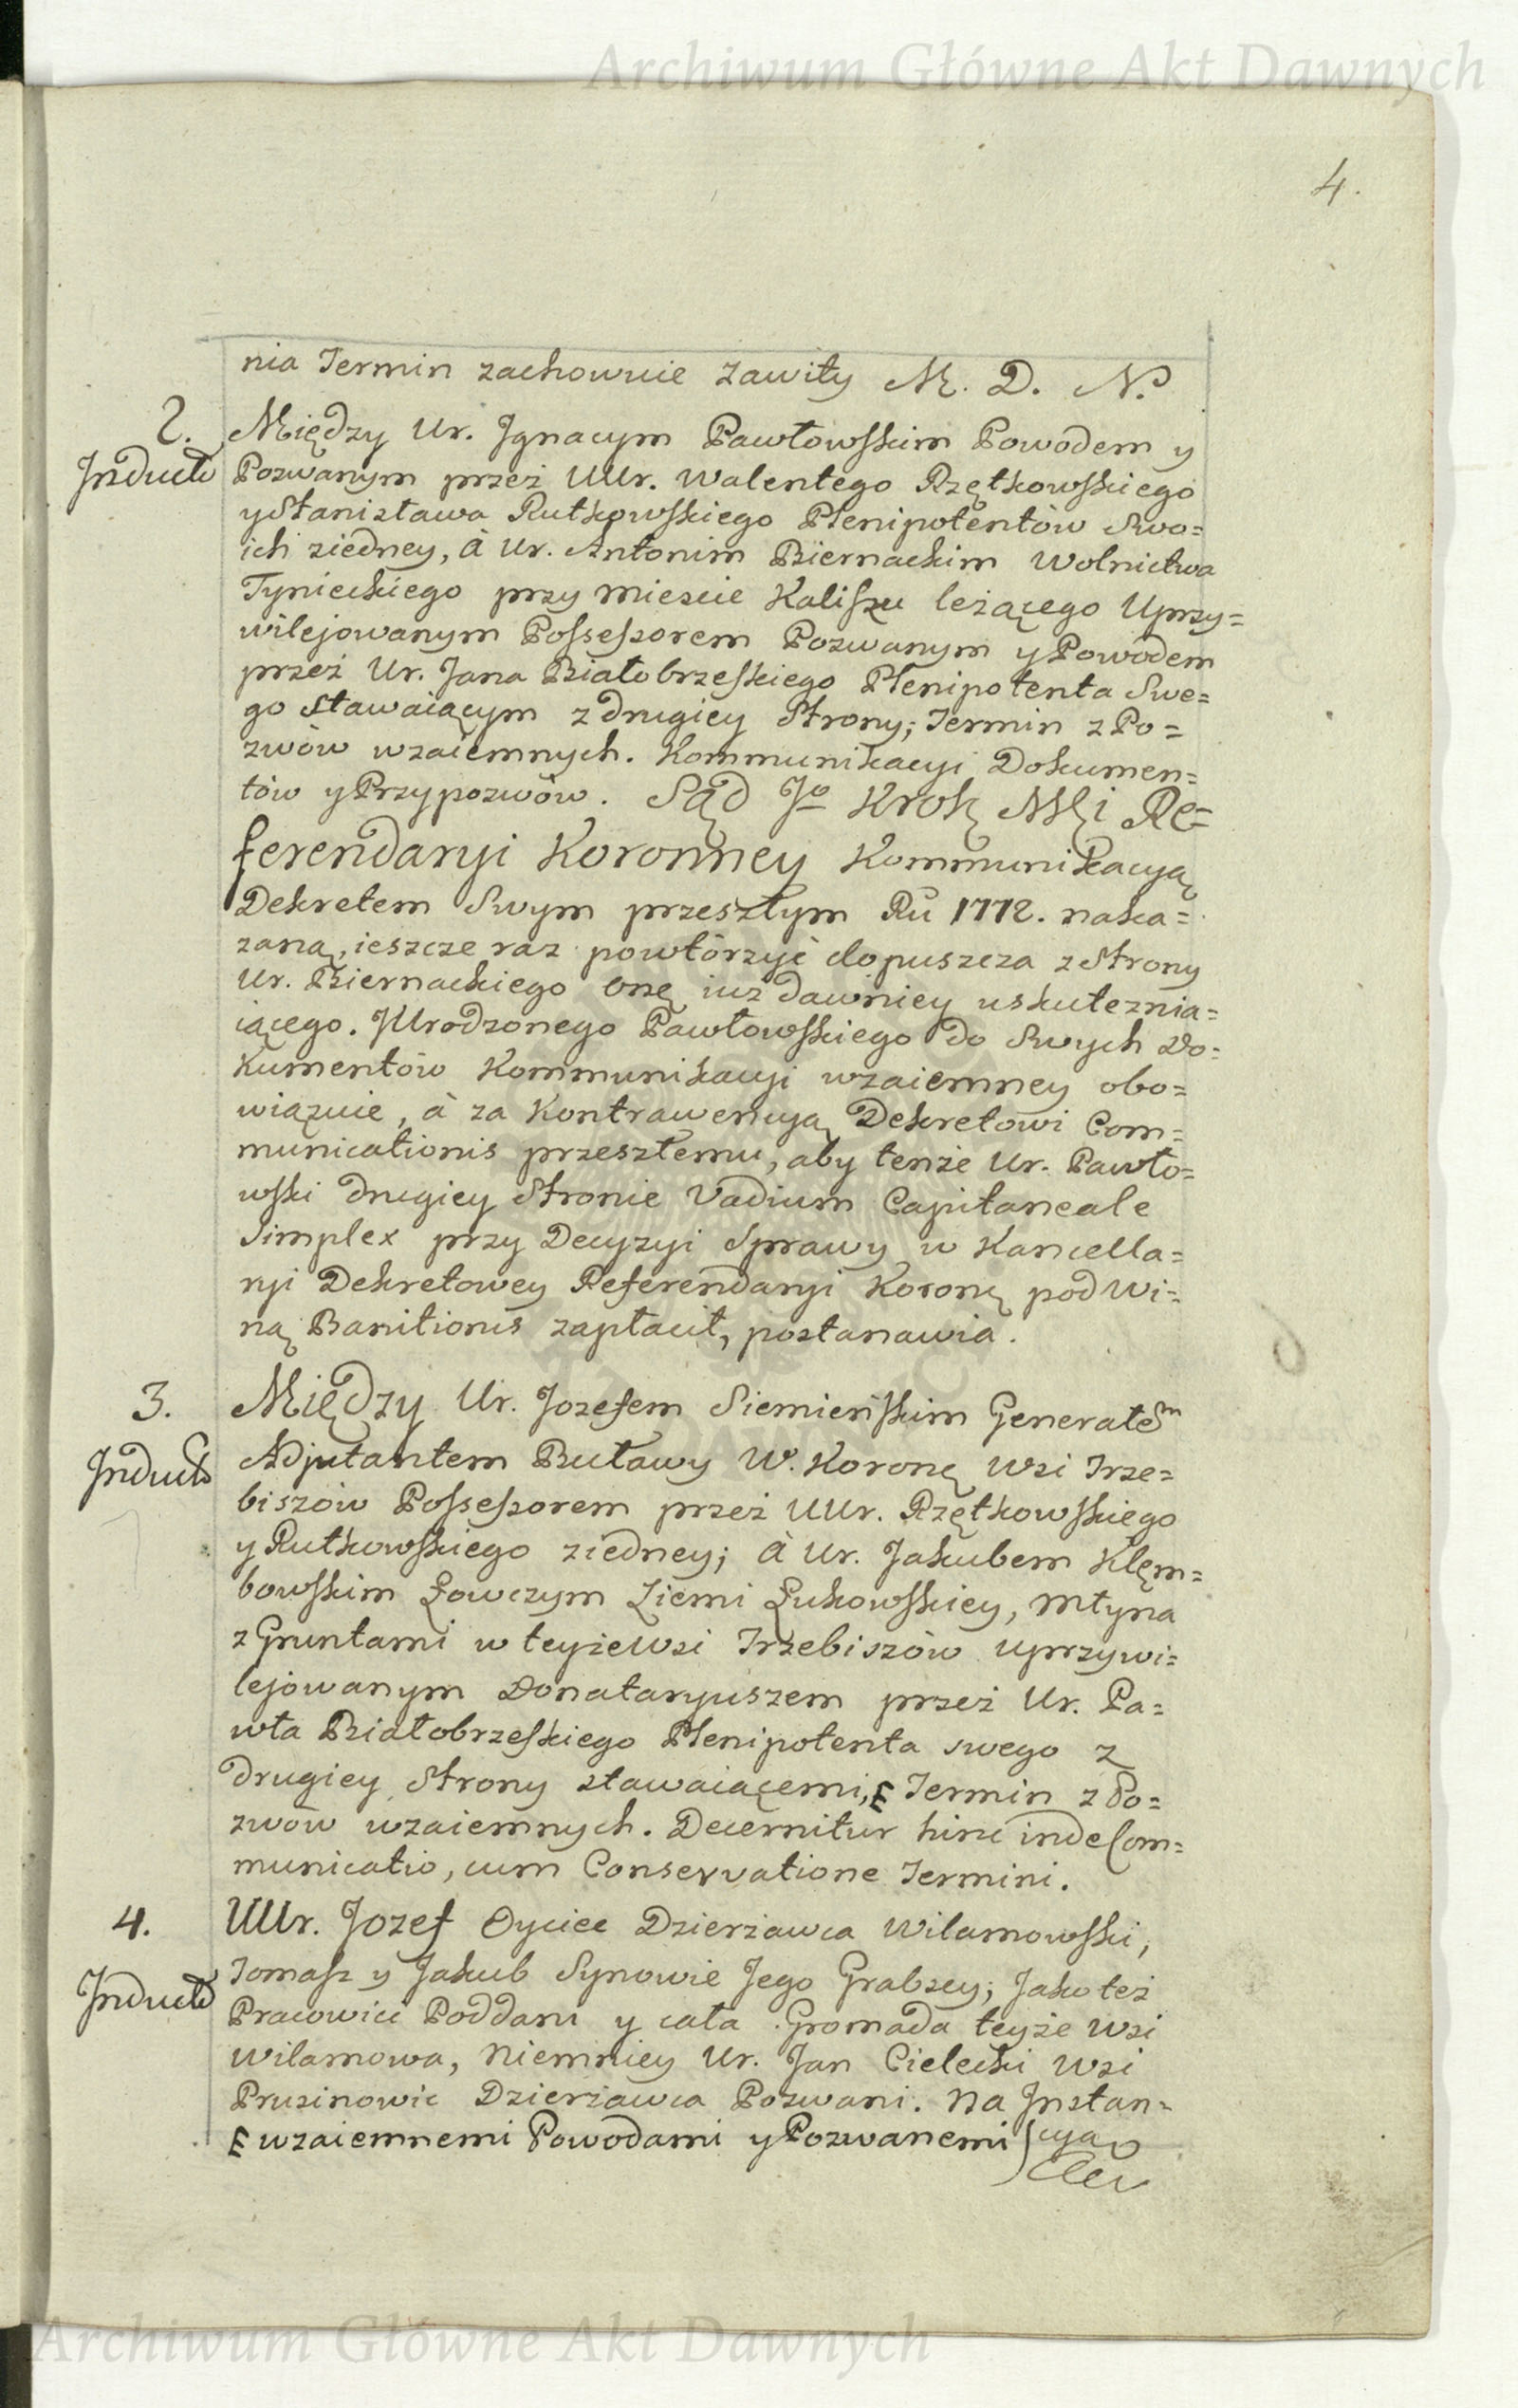 Archiwum Główne Akt Dawnych
4.
nia Termin zachowuie zawity M. D. N.
2. Między Ur. Jgnacym Pawłowskim Powodem y
Jnducta Pozwanym przez UUr. Walentego Rzętkowskiego
y Stanisława Rutkowskiego Plenipotentów Swo=
ich ziedney, à Ur. Antonim Biernackim Wolnictwa
Tynieckiego przy Miescie Kaliszu leżącego Uprzy=
wilejowanym Possessorem Pozwanym y Powodem
przez Ur. Jana Białobrzeskiego Plenipotenta Swe=
go stawaiącym z drugiey Strony; Termin z Po=
zwów wzaiemnych. Kommunikacyi Dokumen=
tów y Przypozwów. Sąd Jo Krok Mći Re=
ferendaryi Koronney Kommunikacyą
Dekretem Swym przeszłym Ru 1772. naka=
zaną, ieszcze raz powtórzyć dopuszcza z Strony
Ur. Biernackiego onę iuz dawniey uskutecznia=
iącego. JUrodzonego Pawłowskiego do Swych Do=
kumentów Kommunikacyi wzaiemney obo=
wiązuie, à za Kontrawencyą Dekretowi Com=
municationis przeszłemu, aby tenże Ur. Pawło=
wski drugiey Stronie Vadium Capitaneale
Simplex przy Decyzyi Sprawy w Kancella=
ryi Dekretowey Referendaryi Koronę pod Wi=
ną Banitionis zapłacił, postanawia.
3. Między Ur. Jozefem Siemieńskim Generałem
Jnducta Adjutantem Buławy W. Koronę Wsi Trze=
biszów Possessorem przez UUr. Rzętkowskiego
y Rutkowskiego ziedney; à Ur. Jakubem Klęm=
bowskim Łowczym Ziemi Łukowskiey, Młyna
z Gruntami w teyże Wsi Trzebiszów uprzywi=
lejowanym Donataryuszem przez Ur. Pa=
wła Białobrzeskiego Plenipotenta swego z
drugiey Strony stawaiącemi, E Termin z Po=
zwów wzaiemnych. Decernitur hinc inde Com=
municatio, cum Conservatione Termini.
4. UUr. Jozef Oyciec Dzierżawca Wilamowski,
Jnducta Tomasz y Jakub Synowie Jego Grabscy; Jako też
Pracowici Poddani y cała Gromada teyże Wsi
Wilamowa, Niemniey Ur. Jan Cielecki Wsi
Prusinowic Dzierżawca Pozwani. Na Jnstan=
E wzaiemnemi Powodami y Pozwanemi cyą
Archiwum Główne Akt Dawnych